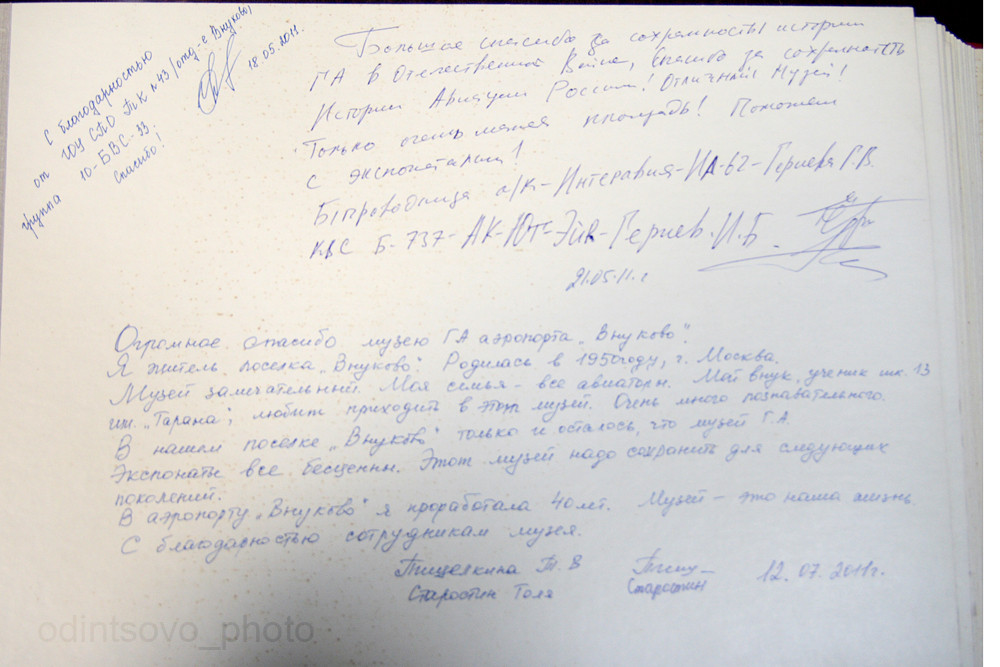 С благодарностью
от ГОУ СПО ТК №43 / отд-е Внуково,
группа 10-БВС-33.
Спасибо!
18.05.2011.
Большое спасибо за сохранность истории
ГА в Отечественной Войне, Спасибо за сохранность
Истории Авиации России! Отличный Музей!
Только очень малая площадь! Поможем
с экспонатами!
Б/проводница а/к-Интеравиа-ИЛ-62-Г.В.
КВС Б-737-АК-ЮТ-Эйр- И.Б.
21.05.11.г
Огромное спасибо музею ГА аэропорта „Внуково".
Я житель поселка „Внуково". Родилась в 1950году, г. Москва.
Музей замечательный. Моя семья - все авиаторы. Мой внук, ученик шк. 13
им. „Тарана", любит приходить в этот музей. Очень много познавательного.
В нашем поселке „Внуково" только и осталось, что музей Г.А.
Экспонаты все бесценны. Этот музей надо сохранить для следующих
поколений.
В аэропорту „Внуково" я проработала 40 лет. Музей - это наша жизнь
С благодарностью сотрудникам музея.
Тищелкина Т. В
Старостин Толя Старостин 12.07.2011г.
odintsovo_photo